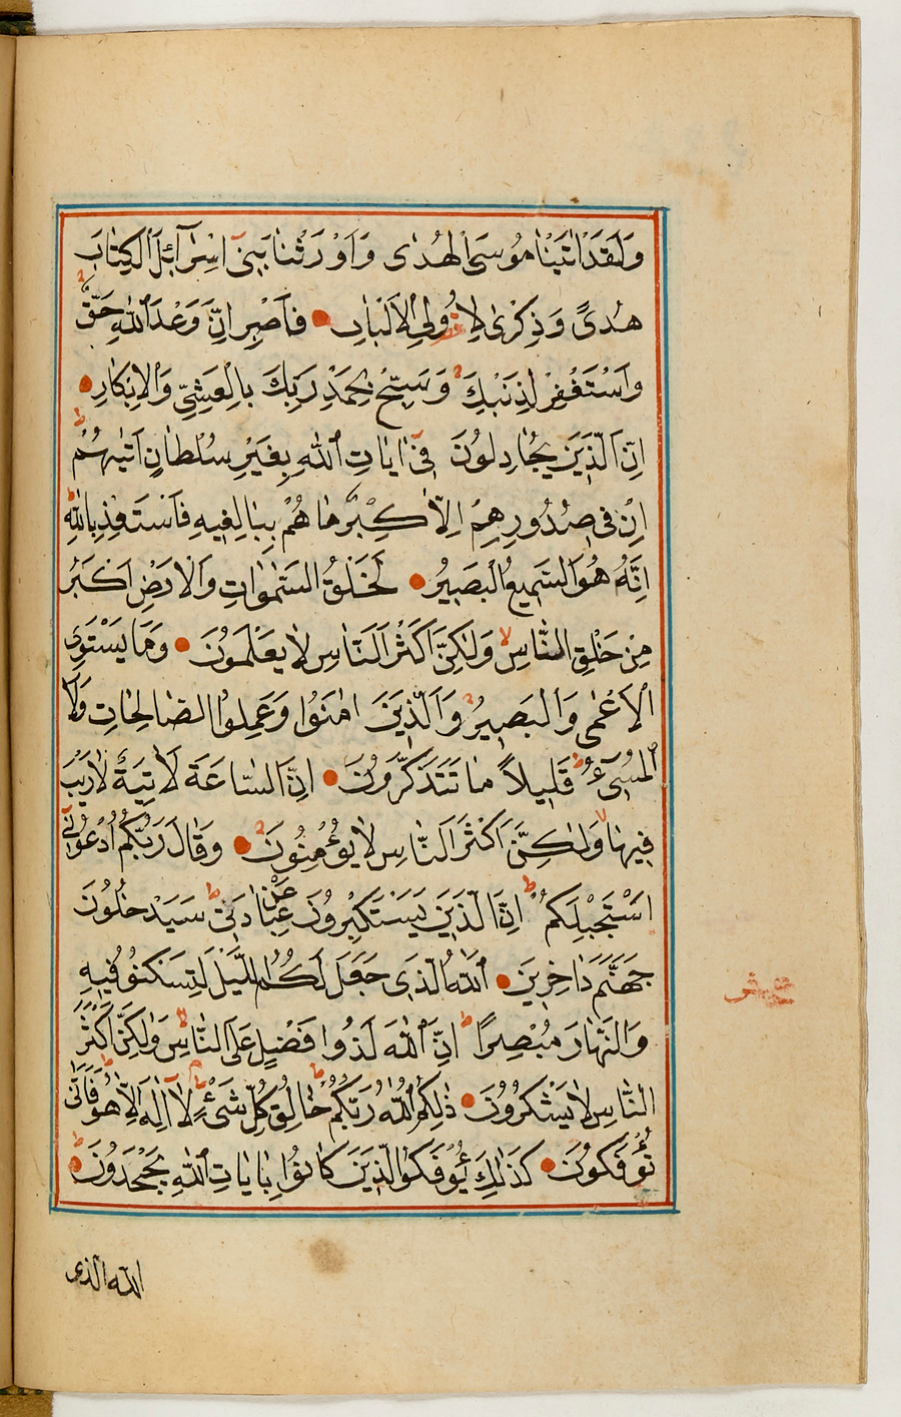 وَلَقَدْ اٰتَيْنَا مُوسَى الْهُدٰى وَاَوْرَثْنَا بَنِىٓ اِسْرَآئِلَ الْكِتَابَ
هُدًى وَذِكْرٰى لِاُولِى الْاَلْبَابِ ● فَاصْبِرْ اِنَّ وَعْدَ اللّٰهِ حَقٌّ
وَاسْتَغْفِرْ لِذَنْبِكَ وَسَبِّحْ بِحَمْدِ رَبِّكَ بِالْعَشِىِّ وَالْاِبْكَارِ ●
اِنَّ الَّذِينَ يُجَادِلُونَ فِىٓ اٰيَاتِ اللّٰهِ بِغَيْرِ سُلْطَانٍ اَتٰيهُمْ
اِنْ فِى صُدُورِهِمْ اِلَّا كِبْرٌ مَا هُمْ بِبَالِغِيهِ فَاسْتَعِذْ بِاللّٰهِ
اِنَّهُ هُوَ السَّمِيعُ الْبَصِيرُ ● لَخَلْقُ السَّمٰوَاتِ وَالْاَرْضِ اَكْبَرُ
مِنْ خَلْقِ النَّاسِ وَلٰكِنَّ اَكْثَرَ النَّاسِ لَا يَعْلَمُونَ ● وَمَا يَسْتَوِى
الْاَعْمٰى وَالْبَصِيرُ وَالَّذِينَ اٰمَنُوا وَعَمِلُوا الصَّالِحَاتِ وَلَا
الْمُسِىٓءُ قَلِيلًا مَا تَتَذَكَّرُونَ ● اِنَّ السَّاعَةَ لَاٰتِيَةٌ لَا رَيْبَ
فِيهَا وَلٰكِنَّ اَكْثَرَ النَّاسِ لَا يُؤْمِنُونَ ● وَقَالَ رَبُّكُمُ ادْعُونِىٓ
اَسْتَجِبْ لَكُمْ اِنَّ الَّذِينَ يَسْتَكْبِرُونَ عَنْ عِبَادَتِى سَيَدْخُلُونَ
جَهَنَّمَ دَاخِرِينَ ● اَللّٰهُ الَّذِى جَعَلَ لَكُمُ الَّيْلَ لِتَسْكُنُوا فِيهِ
عشر
وَالنَّهَارَ مُبْصِرًا اِنَّ اللّٰهَ لَذُوا فَضْلٍ عَلَى النَّاسِ وَلٰكِنَّ اَكْثَرَ
النَّاسِ لَا يَشْكُرُونَ ● ذٰلِكُمُ اللّٰهُ رَبُّكُمْ خَالِقُ كُلِّ شَىْءٍ لَآ اِلٰهَ اِلَّا هُوَ فَاَنّٰى
تُؤْفَكُونَ ● كَذٰلِكَ يُؤْفَكُ الَّذِينَ كَانُوا بِاٰيَاتِ اللّٰهِ يَجْحَدُونَ ●
الله الذى